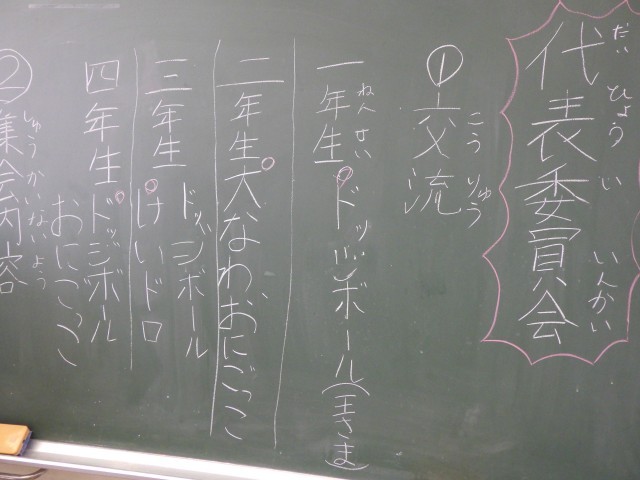 代表委員会
だいひょういいんかい
①交流
こうりゅう
一年生 ドッジボール(王さま)
ねんせい
二年生 大なわ、おにごっこ
三年生 ドッジボール
けいドロ
四年生 ドッジボール
おにごっこ
②集会内容
しゅうかいないよう